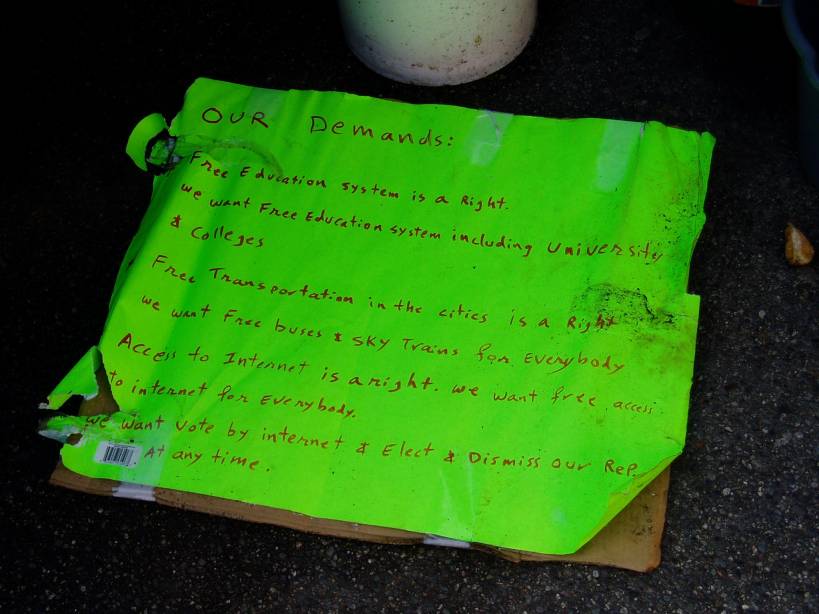 OUR Demands:
Free Education system is a Right.
we want Free Education system including University
& Colleges
Free Transportation in the cities is a Right
we want Free buses & SKY Trains for Everybody
Access to Internet is a right. we want free access
to internet for Everybody.
we want vote by internet & Elect & Dismiss our Rep.
At any time.